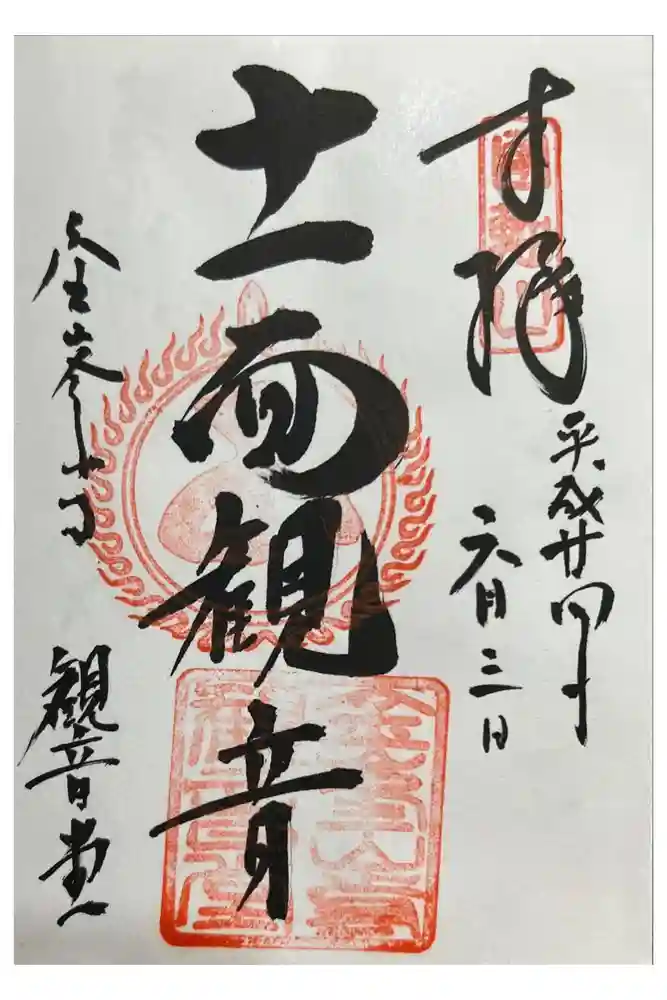 奉拝
平成廿四年
六月三日
十一面観音
金峯山寺
観音堂